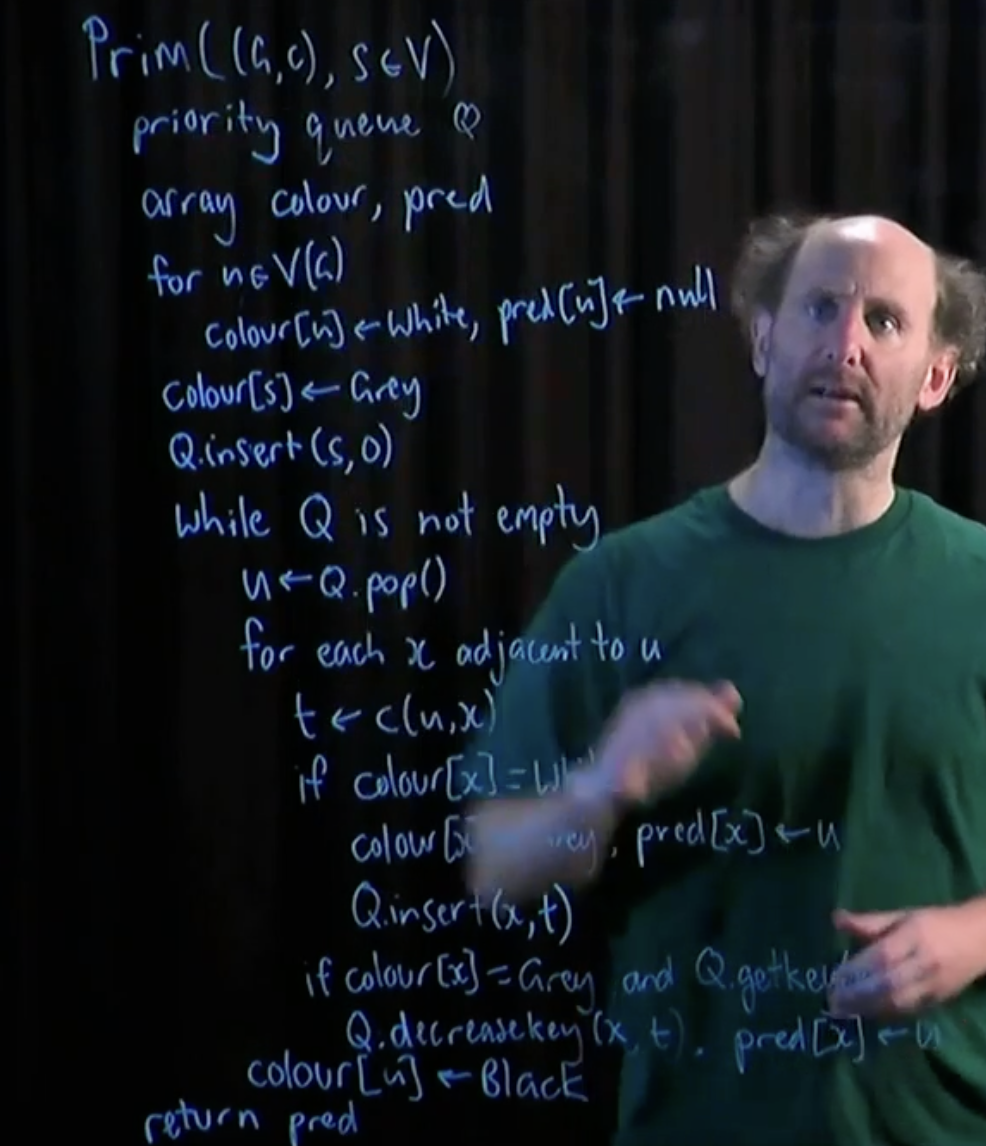 Prim((G,c), s∈V)
priority queue Q
array colour, pred
for u∈V(G)
colour[u] ← White, pred[u] ← null
colour[s] ← Grey
Q.insert(s,0)
While Q is not empty
u ← Q.pop()
for each x adjacent to u
t ← c(u,x)
if colour[x] =
colour[x] Grey, pred[x] ← u
Q.insert(x,t)
if colour[x] = Grey and Q.getkey
Q.decreasekey(x,t). pred[x] ← u
colour[u] ← Black
return pred